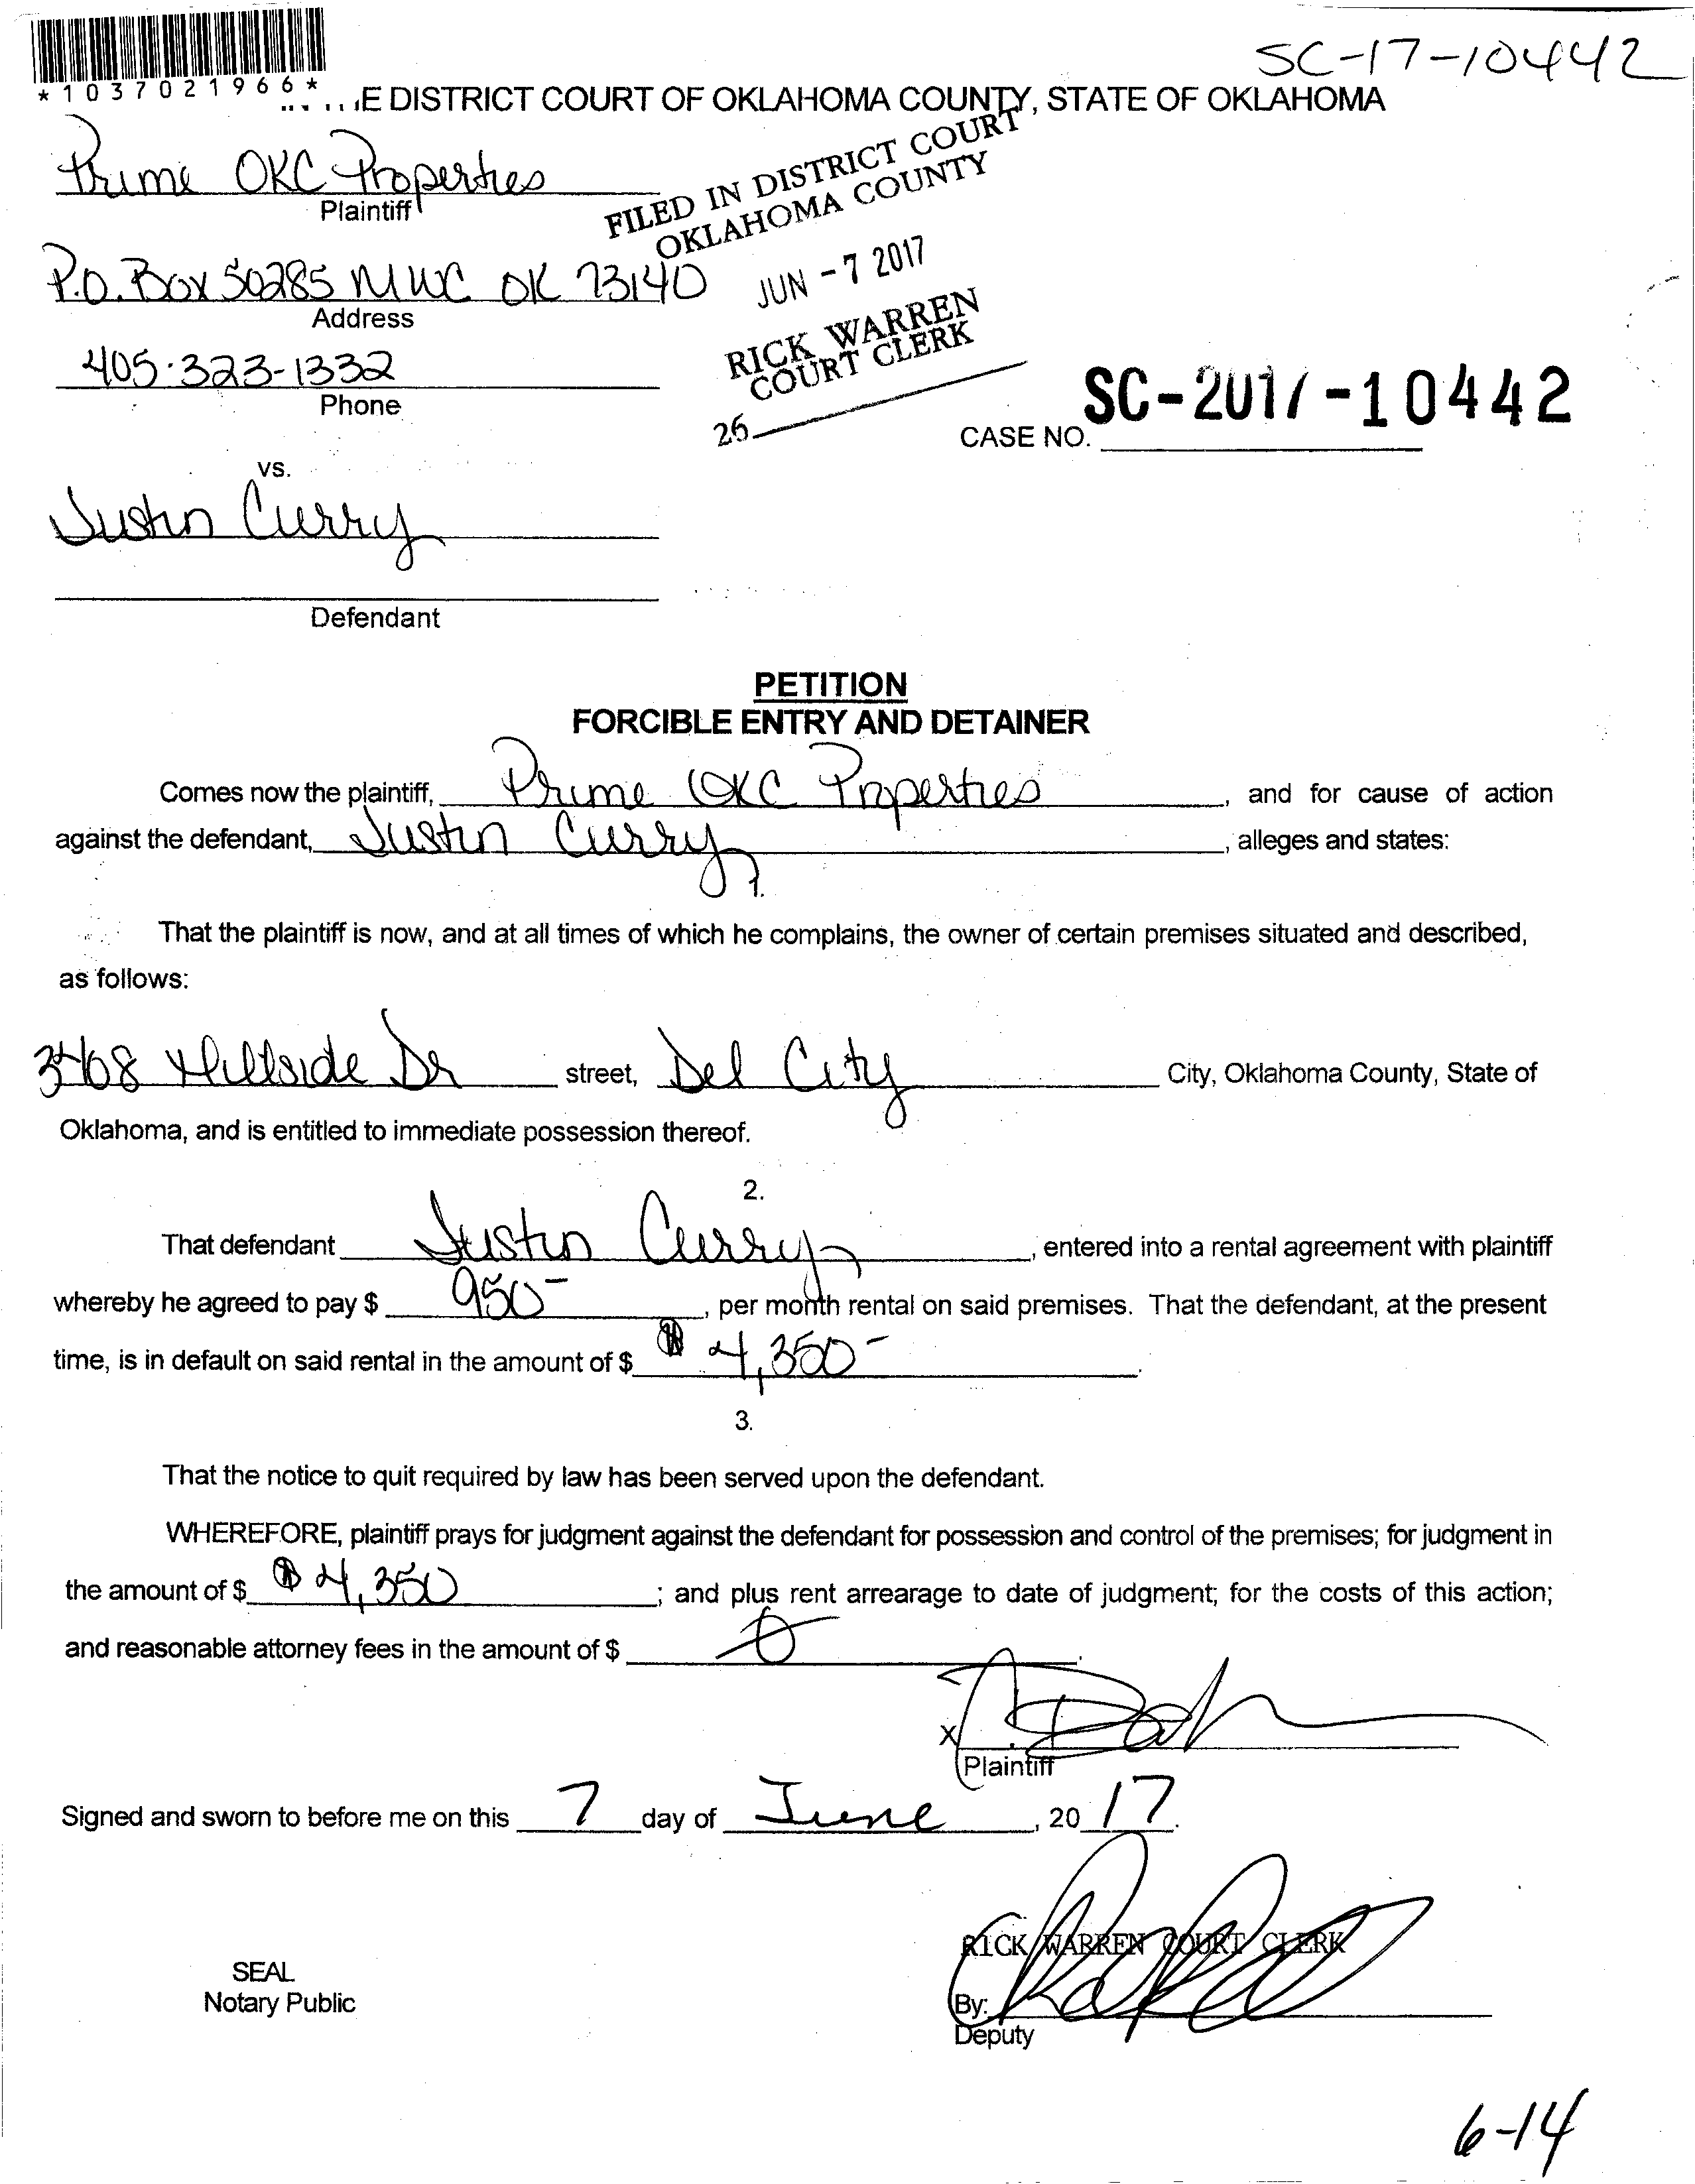 SC-17-10442
*1037021966*
E DISTRICT COURT OF OKLAHOMA COUNTY, STATE OF OKLAHOMA
Prime OKC Properties
Plaintiff
FILED IN DISTRICT COURT
OKLAHOMA COUNTY
P.O. Box 50285 MWC OK 73140
Address
JUN - 7 2017
RICK WARREN
COURT CLERK
405-323-1332
Phone
26
CASE NO. SC-2017-10442
vs.
Justin Curry
Defendant
PETITION
FORCIBLE ENTRY AND DETAINER
Comes now the plaintiff, Prime OKC Properties, and for cause of action
against the defendant, Justin Curry, alleges and states:
1.
That the plaintiff is now, and at all times of which he complains, the owner of certain premises situated and described,
as follows:
3468 Hillside Dr street, Del City City, Oklahoma County, State of
Oklahoma, and is entitled to immediate possession thereof.
2.
That defendant Justin Curry, entered into a rental agreement with plaintiff
whereby he agreed to pay $ 950-, per month rental on said premises. That the defendant, at the present
time, is in default on said rental in the amount of $ 4,350-.
3.
That the notice to quit required by law has been served upon the defendant.
WHEREFORE, plaintiff prays for judgment against the defendant for possession and control of the premises; for judgment in
the amount of $ $4,350; and plus rent arrearage to date of judgment; for the costs of this action;
and reasonable attorney fees in the amount of $ 0.
X
Plaintiff
Signed and sworn to before me on this 7 day of June, 2017.
RICK WARREN COURT CLERK
SEAL
Notary Public
By:
Deputy
6-14